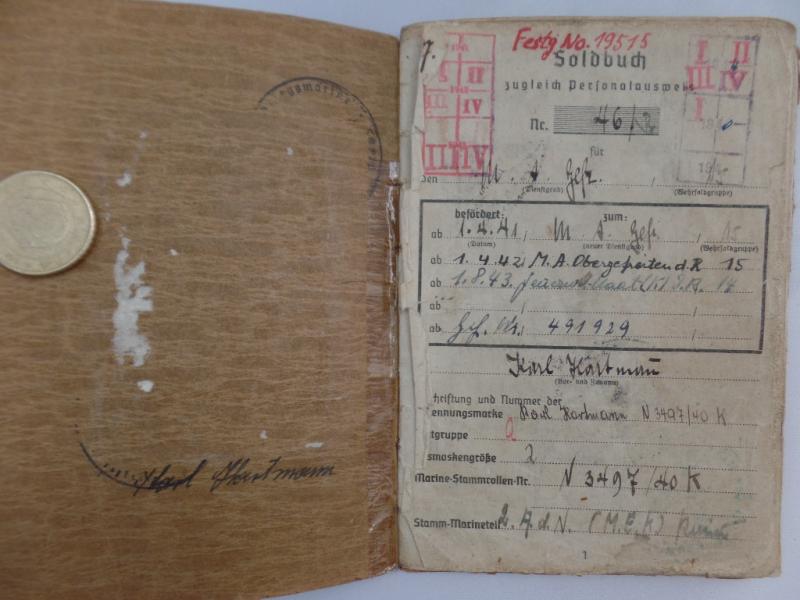 Karl Hartmann
Festg No. 19515
Soldbuch
zugleich Personalausweis
Nr. 46/2
für
den M. A. Gefr.
(Dienstgrad) (Wehrsoldgruppe)
befördert: zum:
ab 1.4.41, M. A. Gefr. , 15
(Datum) (neuer Dienstgrad) (Wehrsoldgruppe)
ab 1.4.42 M.A. Obergefreiten d.R 15
ab 1.8.43. 14
ab
ab 491929
Karl Hartmann
(Vor- und Zuname)
hriftung und Nummer der
ennungsmarke Karl Hartmann N 3497/40 K
tgruppe
smaskengröße 2
Marine-Stammrollen-Nr. N 3497/40 K
Stamm-Marineteil 2. A.d.N. (M.E.K)
1